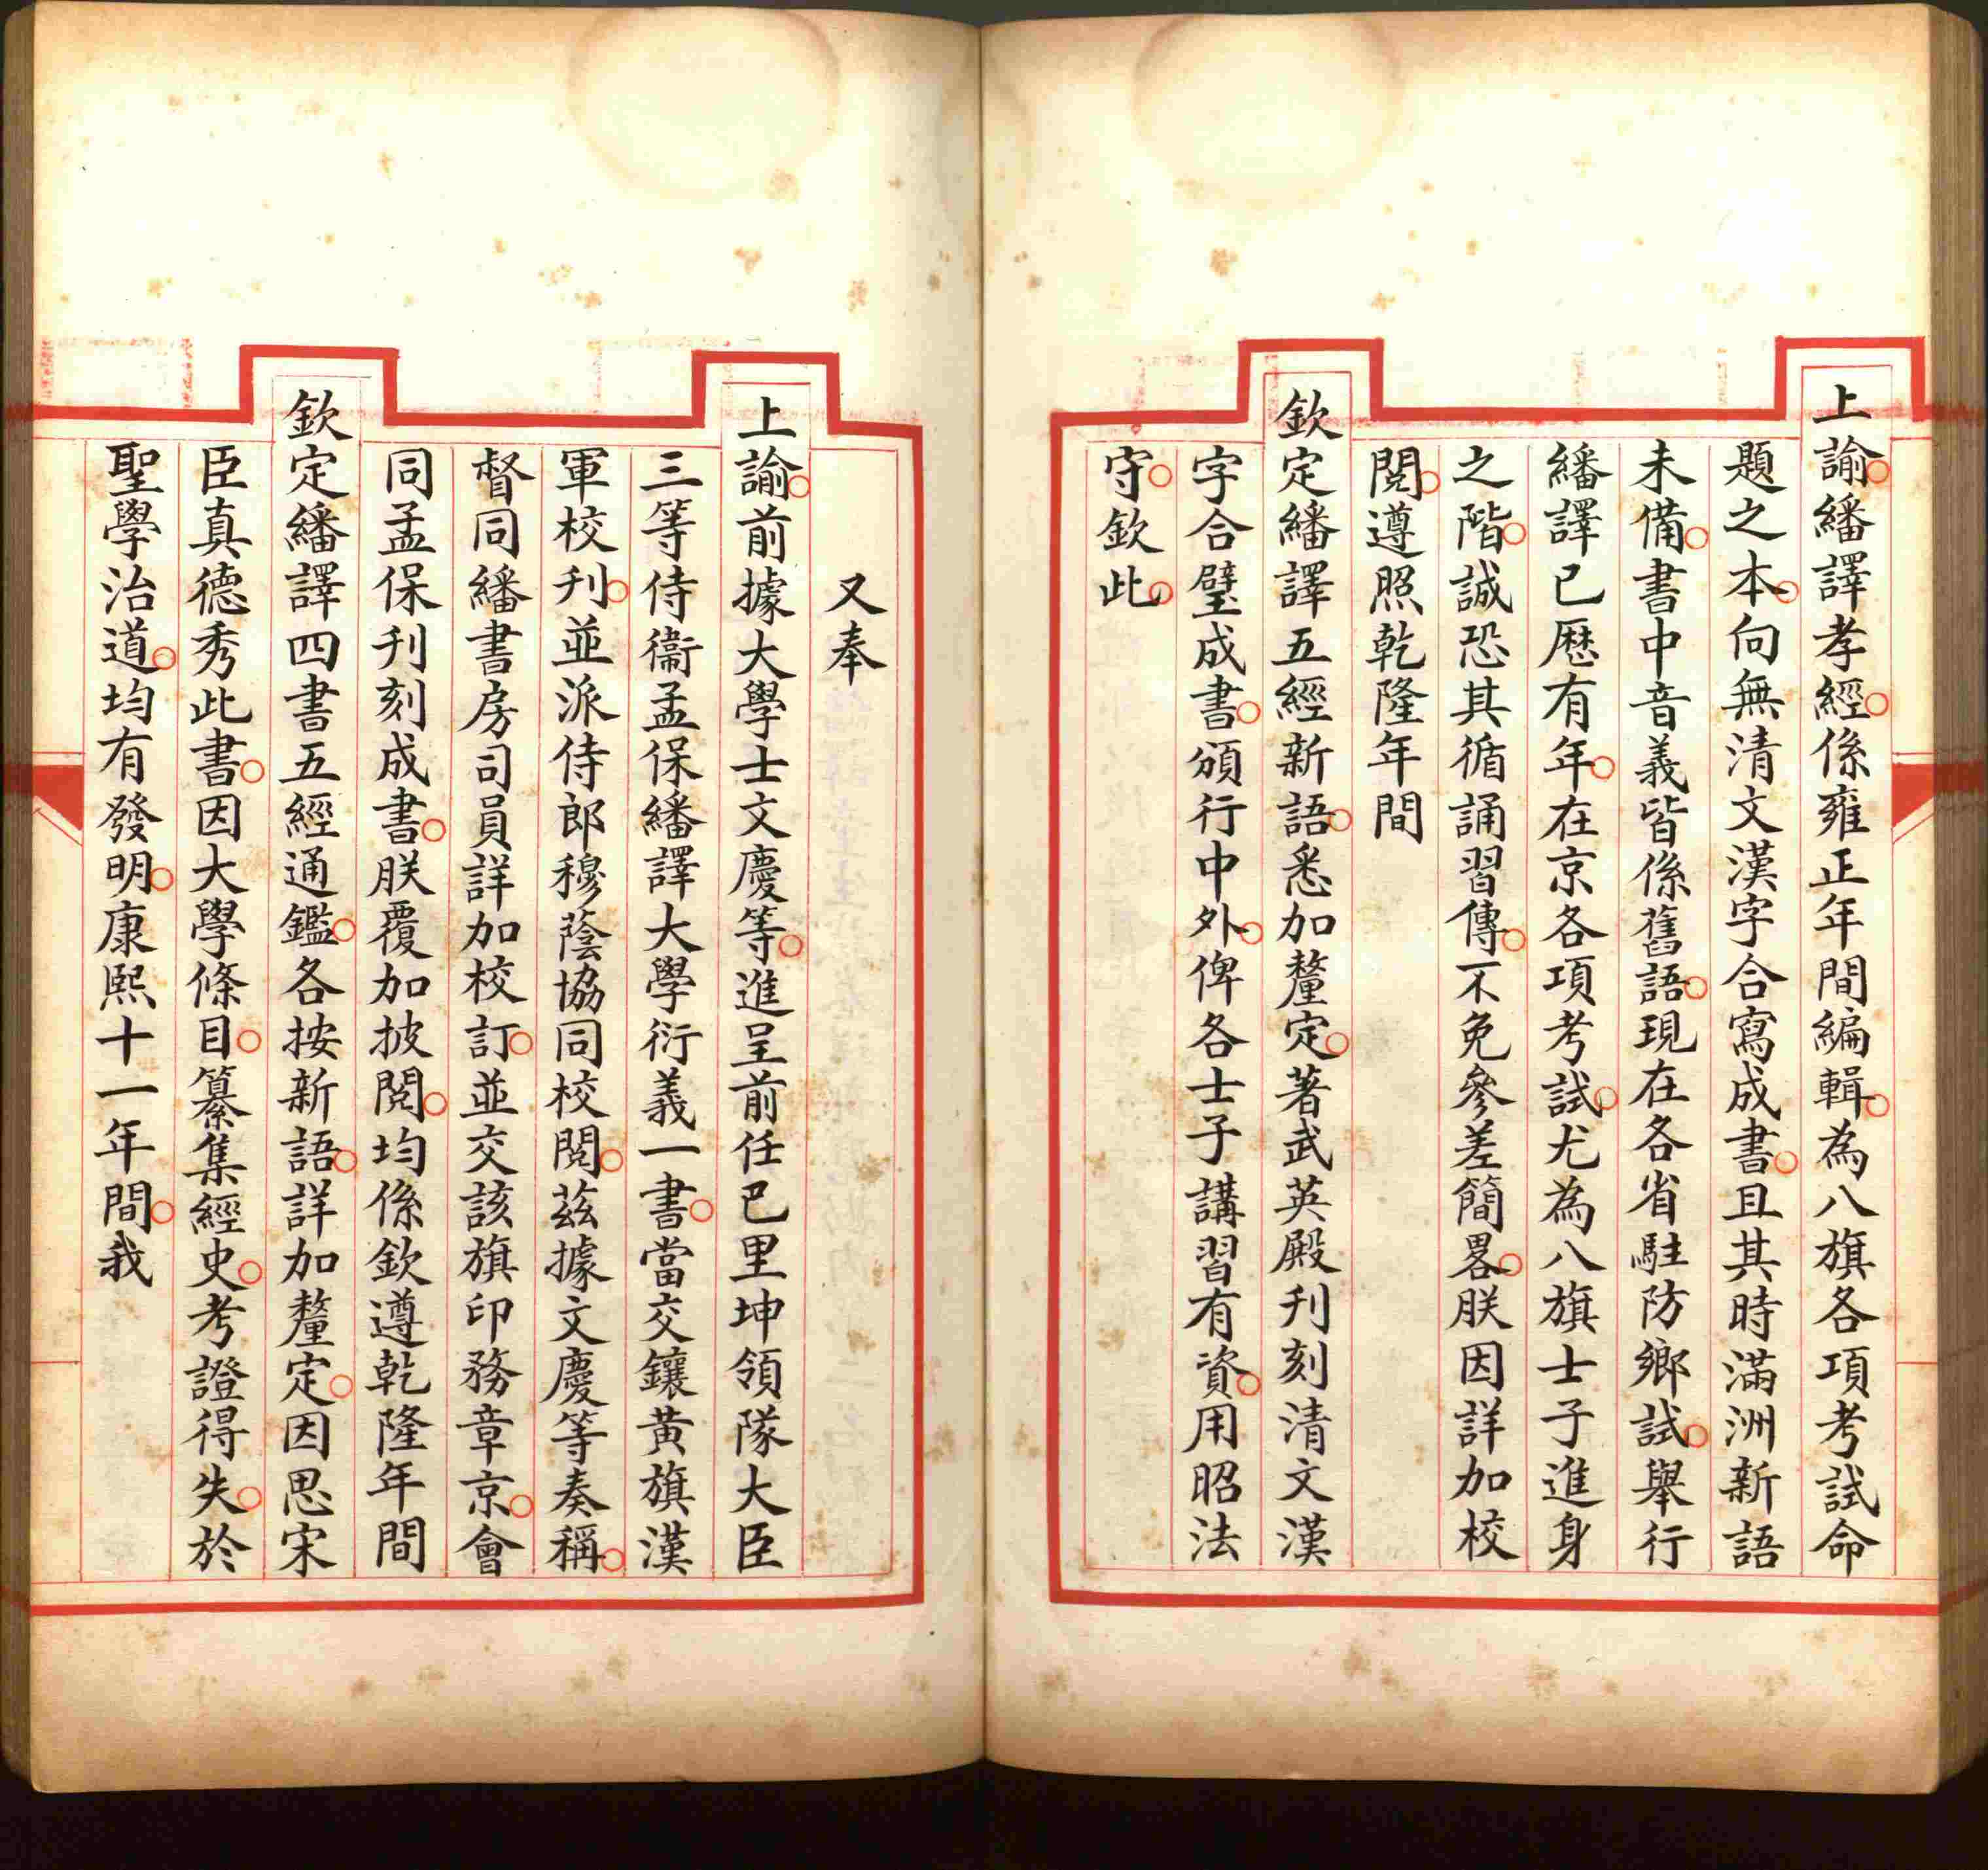 上諭繙譯孝經係雍正年間編輯為八旗各項考試命
題之本向無清文漢字合寫成書且其時滿洲新語
未備書中音義皆係舊語現在各省駐防鄉試舉行
繙譯已歷有年在京各項考試尤為八旗士子進身
之階誠恐其循誦習傳不免參差簡畧朕因詳加校
閱遵照乾隆年間
欽定繙譯五經新語悉加釐定著武英殿刊刻清文漢
字合璧成書頒行中外俾各士子講習有資用昭法
守欽此
又奉
上諭前據大學士文慶等進呈前任巴里坤領隊大臣
三等侍衞孟保繙譯大學衍義一書當交鑲黃旗漢
軍校刊並派侍郎穆蔭協同校閱茲據文慶等奏稱
督同繙書房司員詳加校訂並交該旗印務章京會
同孟保刊刻成書朕覆加披閱均係欽遵乾隆年間
欽定繙譯四書五經通鑑各按新語詳加釐定因思宋
臣真德秀此書因大學條目纂集經史考證得失於
聖學治道均有發明康熙十一年間我